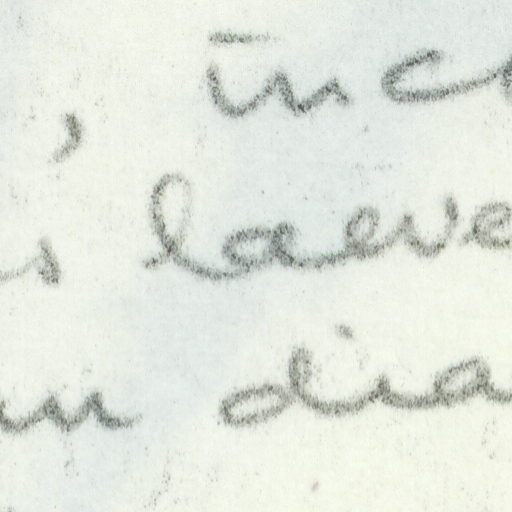 , inc
s laeve
m dia